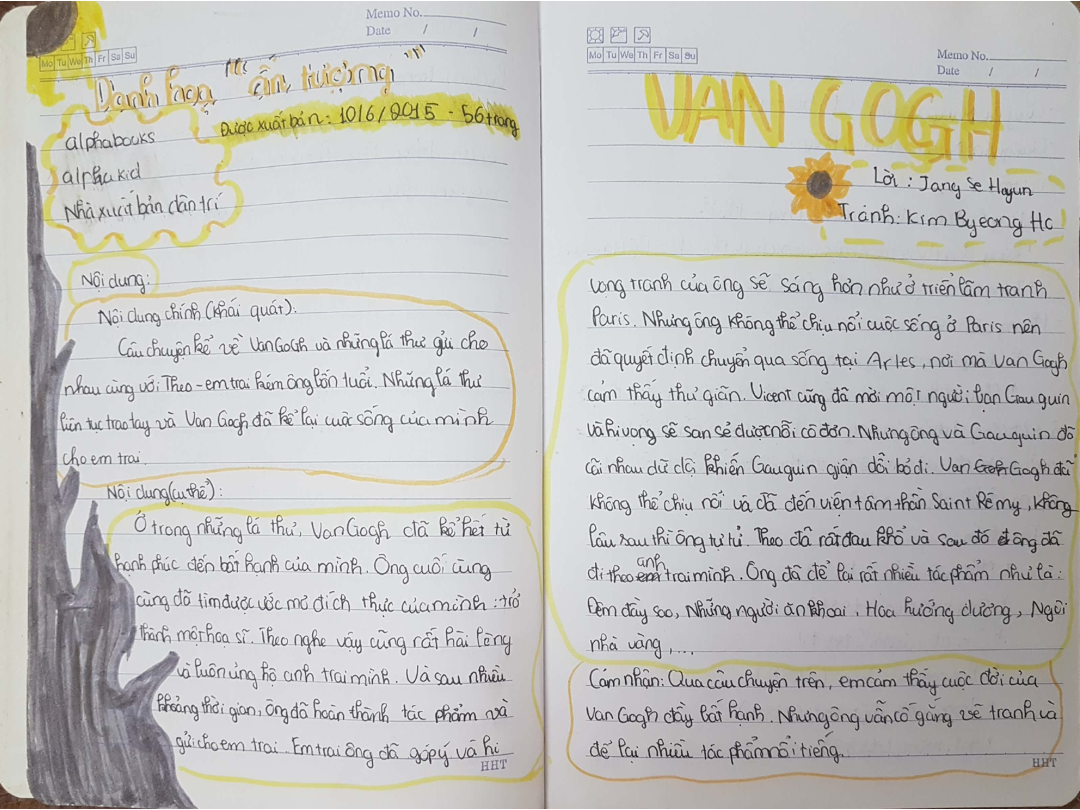 Memo No.
Date / /
Mo Tu We Th Fr Sa Su
Danh hoạ "ấn tượng"
Được xuất bản: 10/6/2015 - 56 trang
alphabooks
alpha kid
Nhà xuất bản dân trí
Nội dung:
Nội dung chính (khái quát):
Câu chuyện kể về Van Gogh và những lá thư gửi cho
nhau cùng với Theo - em trai kém ông bốn tuổi. Những lá thư
liên tục trao tay và Van Gogh đã kể lại cuộc sống của mình
cho em trai.
Nội dung (cụ thể):
Ở trong những lá thư, Van Gogh đã kể hết từ
hạnh phúc đến bất hạnh của mình. Ông cuối cùng
cũng đã tìm được ước mơ đích thực của mình: trở
thành một họa sĩ. Theo nghe vậy cũng rất hài lòng
và luôn ủng hộ anh trai mình. Và sau nhiều
khoảng thời gian, ông đã hoàn thành tác phẩm và
gửi cho em trai. Em trai ông đã góp ý và hi
HHT
Mo Tu We Th Fr Sa Su
Memo No.
Date / /
VAN GOGH
Lời: Jang Se Hoyun
Tránh: Kim Byeong Ho
vọng tranh của ông sẽ sáng hơn như ở triển lãm tranh
Paris. Nhưng ông không thể chịu nổi cuộc sống ở Paris nên
đã quyết định chuyển qua sống tại Arles, nơi mà Van Gogh
cảm thấy thư giãn. Vicent cũng đã mời một người bạn Gauguin
và hi vọng sẽ san sẻ được nỗi cô đơn. Nhưng ông và Gauguin đã
cãi nhau dữ dội khiến Gauguin giận dỗi bỏ đi. Van Gogh đã
không thể chịu nổi và đã đến viện tâm thần Saint Rémy, không
lâu sau thì ông tự tử. Theo đã rất đau khổ và sau đó ông đã
đi theo anh trai mình. Ông đã để lại rất nhiều tác phẩm như là:
Đêm đầy sao, Những người ăn khoai, Hoa hướng dương, Ngôi
nhà vàng,...
Cảm nhận: Qua câu chuyện trên, em cảm thấy cuộc đời của
Van Gogh đầy bất hạnh. Nhưng ông vẫn cố gắng vẽ tranh và
để lại nhiều tác phẩm nổi tiếng.
HHT